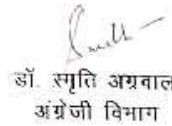 डॉ. स्मृति अग्रवाल
अंग्रेजी विभाग